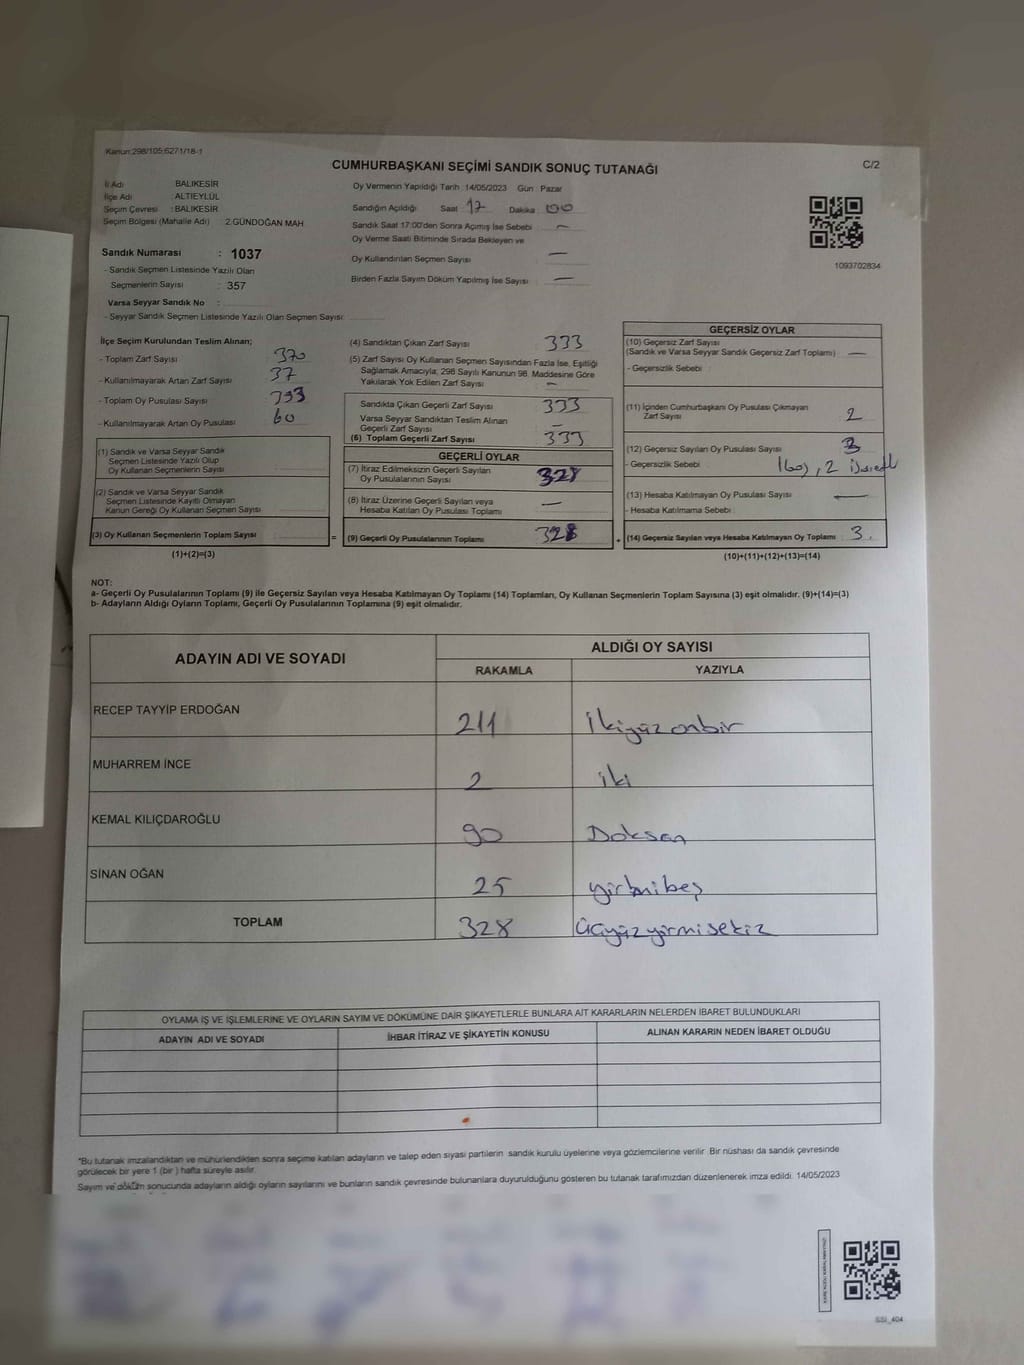 Kanun:298/105;6271/18-1
CUMHURBAŞKANI SEÇİMİ SANDIK SONUÇ TUTANAĞI
C/2
İl Adı BALIKESİR
İlçe Adı : ALTIEYLÜL
Seçim Çevresi : BALIKESİR
Seçim Bölgesi (Mahalle Adı) : 2.GÜNDOĞAN MAH.
Oy Vermenin Yapıldığı Tarih : 14/05/2023 Gün : Pazar
Sandığın Açıldığı Saat 17 Dakika : 00
Sandık Saat 17:00'den Sonra Açılmış İse Sebebi : —
Oy Verme Saati Bitiminde Sırada Bekleyen ve
Oy Kullandırılan Seçmen Sayısı —
Birden Fazla Sayım Döküm Yapılmış İse Sayısı : —
1093702834
Sandık Numarası : 1037
- Sandık Seçmen Listesinde Yazılı Olan
Seçmenlerin Sayısı : 357
Varsa Seyyar Sandık No :
- Seyyar Sandık Seçmen Listesinde Yazılı Olan Seçmen Sayısı:
İlçe Seçim Kurulundan Teslim Alınan;
- Toplam Zarf Sayısı : 370
- Kullanılmayarak Artan Zarf Sayısı : 37
- Toplam Oy Pusulası Sayısı : 393
- Kullanılmayarak Artan Oy Pusulası : 60
(1) Sandık ve Varsa Seyyar Sandık
Seçmen Listesinde Yazılı Olup
Oy Kullanan Seçmenlerin Sayısı :
(2) Sandık ve Varsa Seyyar Sandık
Seçmen Listesinde Kayıtlı Olmayan
Kanun Gereği Oy Kullanan Seçmen Sayısı :
(3) Oy Kullanan Seçmenlerin Toplam Sayısı :
(1)+(2)=(3)
(4) Sandıktan Çıkan Zarf Sayısı : 333
(5) Zarf Sayısı Oy Kullanan Seçmen Sayısından Fazla İse, Eşitliği
Sağlamak Amacıyla; 298 Sayılı Kanunun 98. Maddesine Göre
Yakılarak Yok Edilen Zarf Sayısı : —
Sandıkta Çıkan Geçerli Zarf Sayısı : 333
Varsa Seyyar Sandıktan Teslim Alınan
Geçerli Zarf Sayısı : —
(6) Toplam Geçerli Zarf Sayısı : 333
GEÇERLİ OYLAR
(7) İtiraz Edilmeksizin Geçerli Sayılan
Oy Pusulalarının Sayısı : 328
(8) İtiraz Üzerine Geçerli Sayılan veya
Hesaba Katılan Oy Pusulası Toplamı : —
= (9) Geçerli Oy Pusulalarının Toplamı : 328
GEÇERSİZ OYLAR
(10) Geçersiz Zarf Sayısı
(Sandık ve Varsa Seyyar Sandık Geçersiz Zarf Toplamı) : —
- Geçersizlik Sebebi :
(11) İçinden Cumhurbaşkanı Oy Pusulası Çıkmayan
Zarf Sayısı : 2
(12) Geçersiz Sayılan Oy Pusulası Sayısı : 3
- Geçersizlik Sebebi : 1boş, 2 işaretli
(13) Hesaba Katılmayan Oy Pusulası Sayısı : —
- Hesaba Katılmama Sebebi :
+ (14) Geçersiz Sayılan veya Hesaba Katılmayan Oy Toplamı : 3.
(10)+(11)+(12)+(13)=(14)
NOT:
a- Geçerli Oy Pusulalarının Toplamı (9) ile Geçersiz Sayılan veya Hesaba Katılmayan Oy Toplamı (14) Toplamları, Oy Kullanan Seçmenlerin Toplam Sayısına (3) eşit olmalıdır. (9)+(14)=(3)
b- Adayların Aldığı Oyların Toplamı, Geçerli Oy Pusulalarının Toplamına (9) eşit olmalıdır.
ADAYIN ADI VE SOYADI ALDIĞI OY SAYISI
RAKAMLA YAZIYLA
RECEP TAYYİP ERDOĞAN 211 ikiyüzonbir
MUHARREM İNCE 2 iki
KEMAL KILIÇDAROĞLU 90 Doksan
SİNAN OĞAN 25 yirmibeş
TOPLAM 328 üçyüzyirmisekiz
OYLAMA İŞ VE İŞLEMLERİNE VE OYLARIN SAYIM VE DÖKÜMÜNE DAİR ŞİKAYETLERLE BUNLARA AİT KARARLARIN NELERDEN İBARET BULUNDUKLARI
ADAYIN ADI VE SOYADI İHBAR İTİRAZ VE ŞİKAYETİN KONUSU ALINAN KARARIN NEDEN İBARET OLDUĞU
"Bu tutanak imzalandıktan ve mühürlendikten sonra seçime katılan adayların ve talep eden siyasi partilerin sandık kurulu üyelerine veya gözlemcilerine verilir. Bir nüshası da sandık çevresinde
görülecek bir yere 1 (bir ) hafta süreyle asılır.
Sayım ve döküm sonucunda adayların aldığı oyların sayılarını ve bunların sandık çevresinde bulunanlara duyurulduğunu gösteren bu tutanak tarafımızdan düzenlenerek imza edildi. 14/05/2023
SSI_404